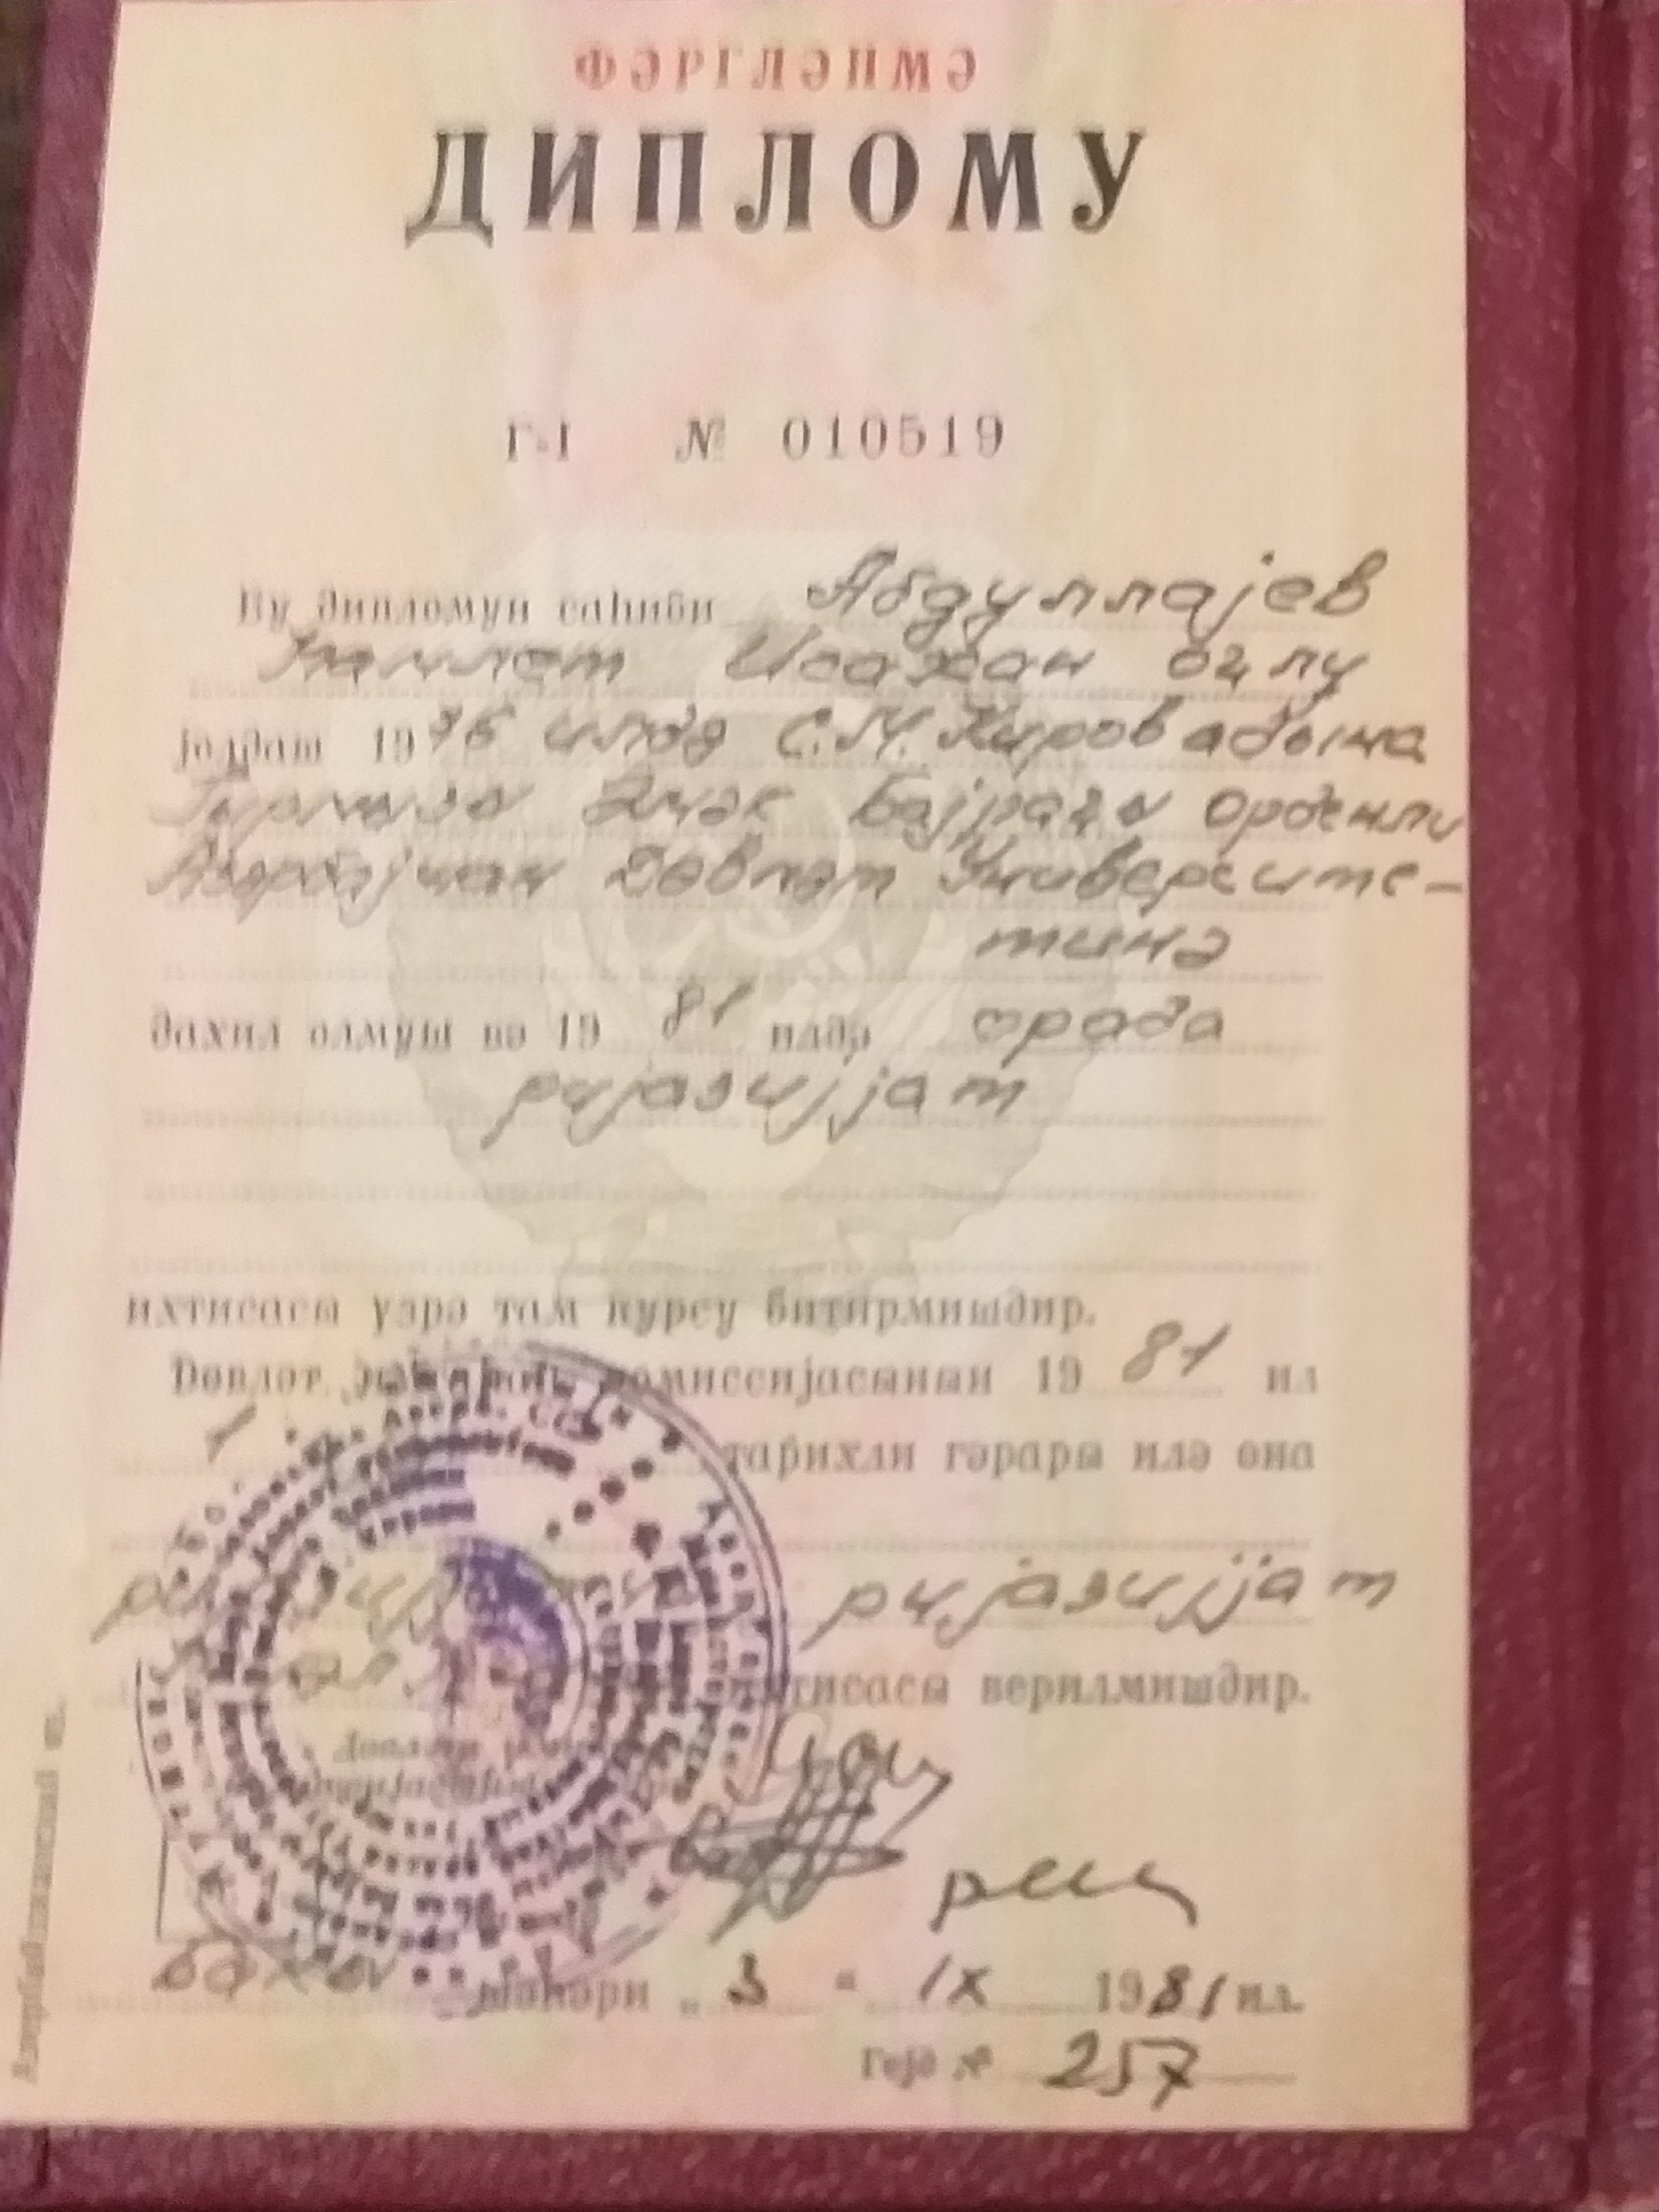 ФӘРГЛӘНМӘ
ДИПЛОМУ
Г-I № 010519
Бу дипломун саһиби Абдуллајев
Исахан оглу
јолдаш 1976 илдә С.М.Киров адына
Гырмызы Әмәк Бајрағы Орденли
Азәрбајҹан Дөвләт Университе-
тинә
дахил олмуш вә 1981 илдә орада
ријазијјат
ихтисасы үзрә там курсу битирмишдир.
Дөвләт комиссијасынын 1981 ил
тарихли гәрары илә она
ријазијјат
ихтисасы верилмишдир.
Бакы шәһәри „3“ IX 1981 ил.
Гејд № 257